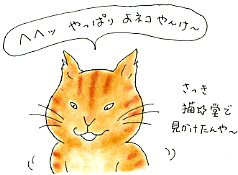 ヘヘッ やっぱり よネコ やんけ〜
さっき
猫好堂で
見かけたんや〜